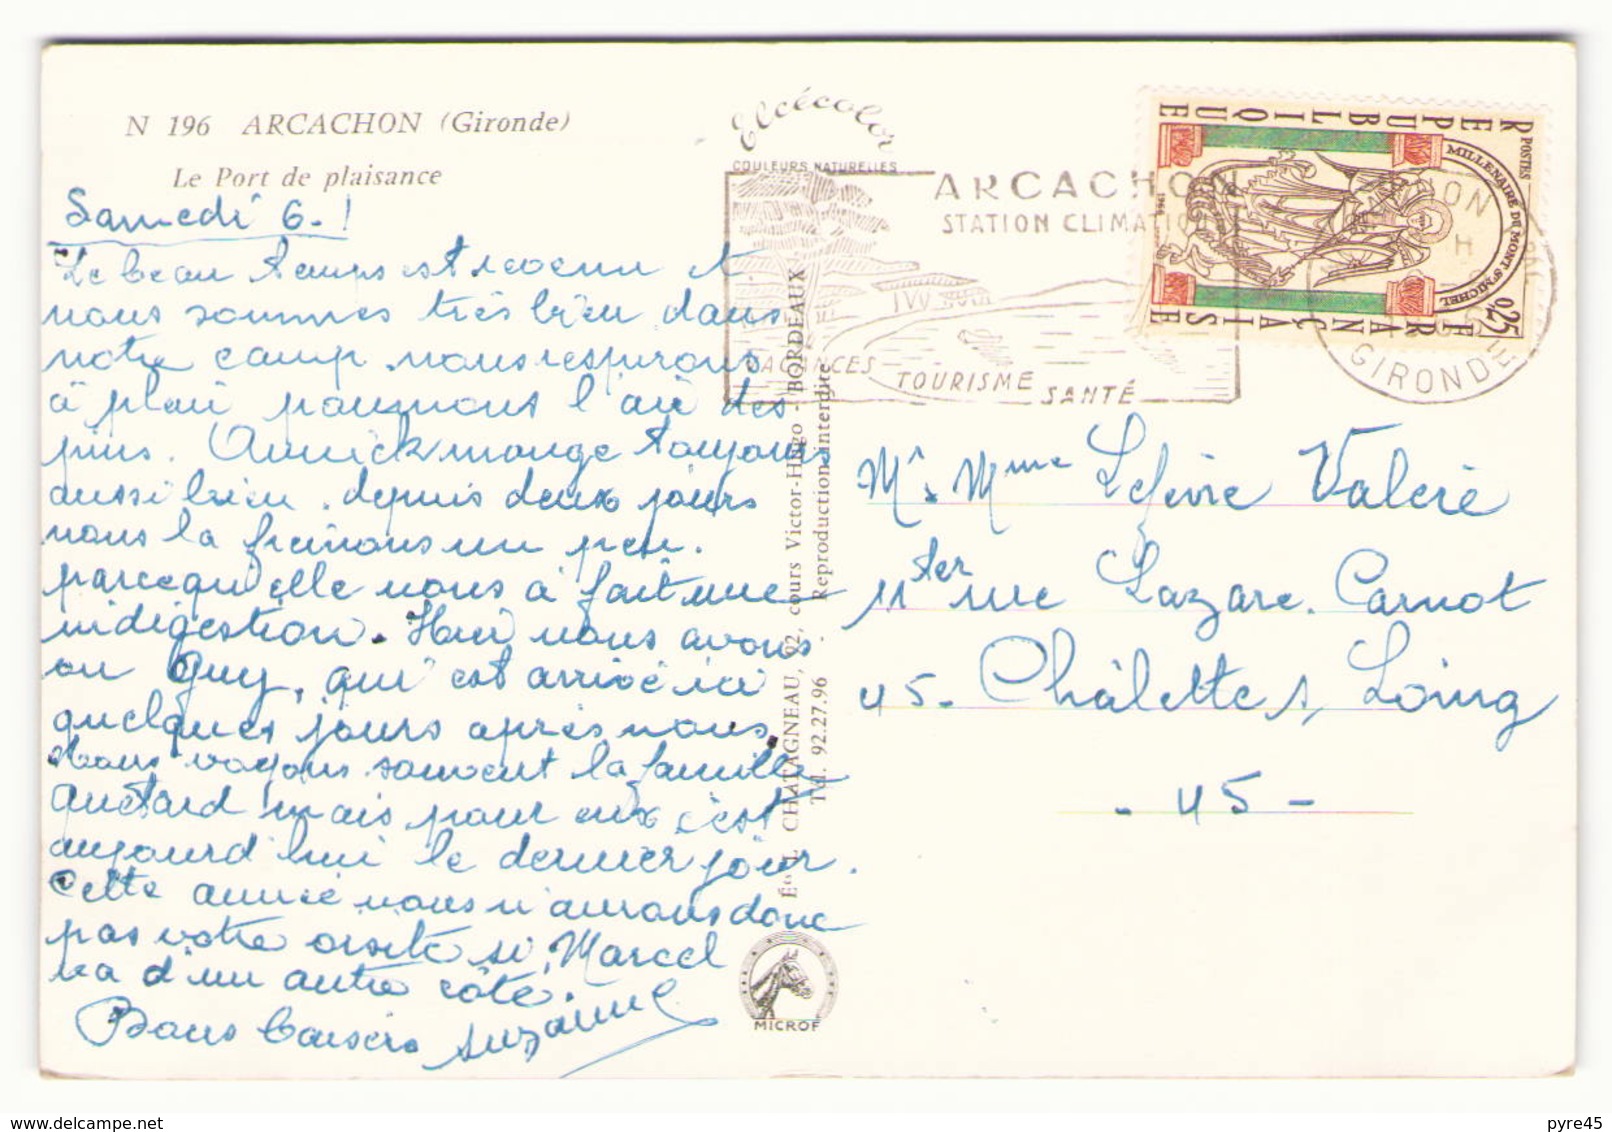 N 196 ARCACHON (Gironde)
Le Port de plaisance
Samedi 6-!
Le beau temps est revenu et
nous sommes très bien dans
notre camp nous respirons
à plein poumons l'air des
pins. Annick mange toujours
aussi bien. depuis deux jours
nous la freinons un peu.
parcequ'elle nous à fait une
indigestion. Hier nous avons
vu Guy, qui est arrivé ici
quelques jours après nous.
Nous voyons souvent la famille
Quetard mais pour eux c'est
aujourd'hui le dernier jour.
Cette année nous n'aurons donc
pas votre visite si Marcel
va d'un autre côté.
Bons baisers Suzanne
Elcécolor
COULEURS NATURELLES
ARCACHON
STATION CLIMATIQUE
VACANCES TOURISME SANTÉ
REPUBLIQUE
FRANÇAISE
POSTES
MILLENAIRE DU MONT ST MICHEL
0,25
1966
GIRONDE
L. CHATAGNEAU, 92, cours Victor-Hugo - BORDEAUX
Tél. 92.27.96 - Reproduction interdite
MICROF
Mr. Mme Lefèvre Valère
11 ter rue Lazare. Carnot
45- Châlette s/ Loing
- 45 -
pyre45